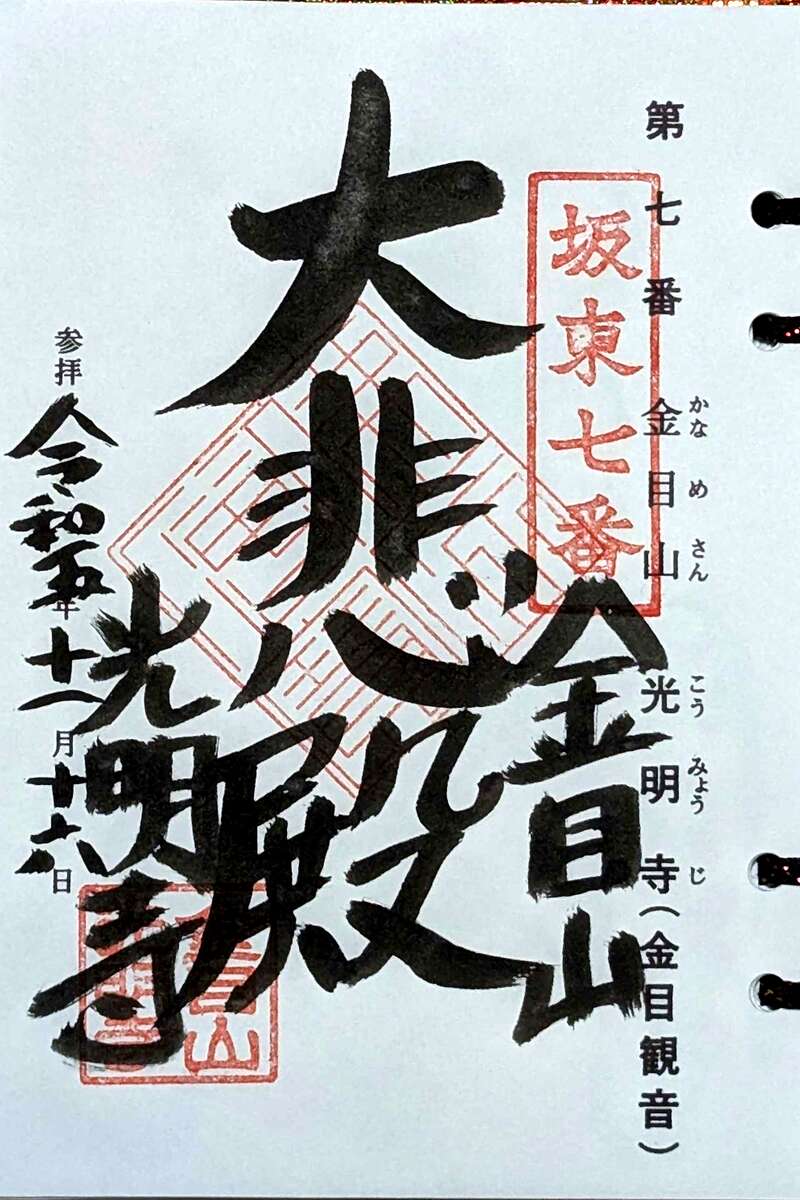 かなめさん こうみょうじ
第七番 金目山 光明寺(金目観音)
坂東七番
金目山
大悲殿
光明寺
参拝 令和五年十一月廿六日